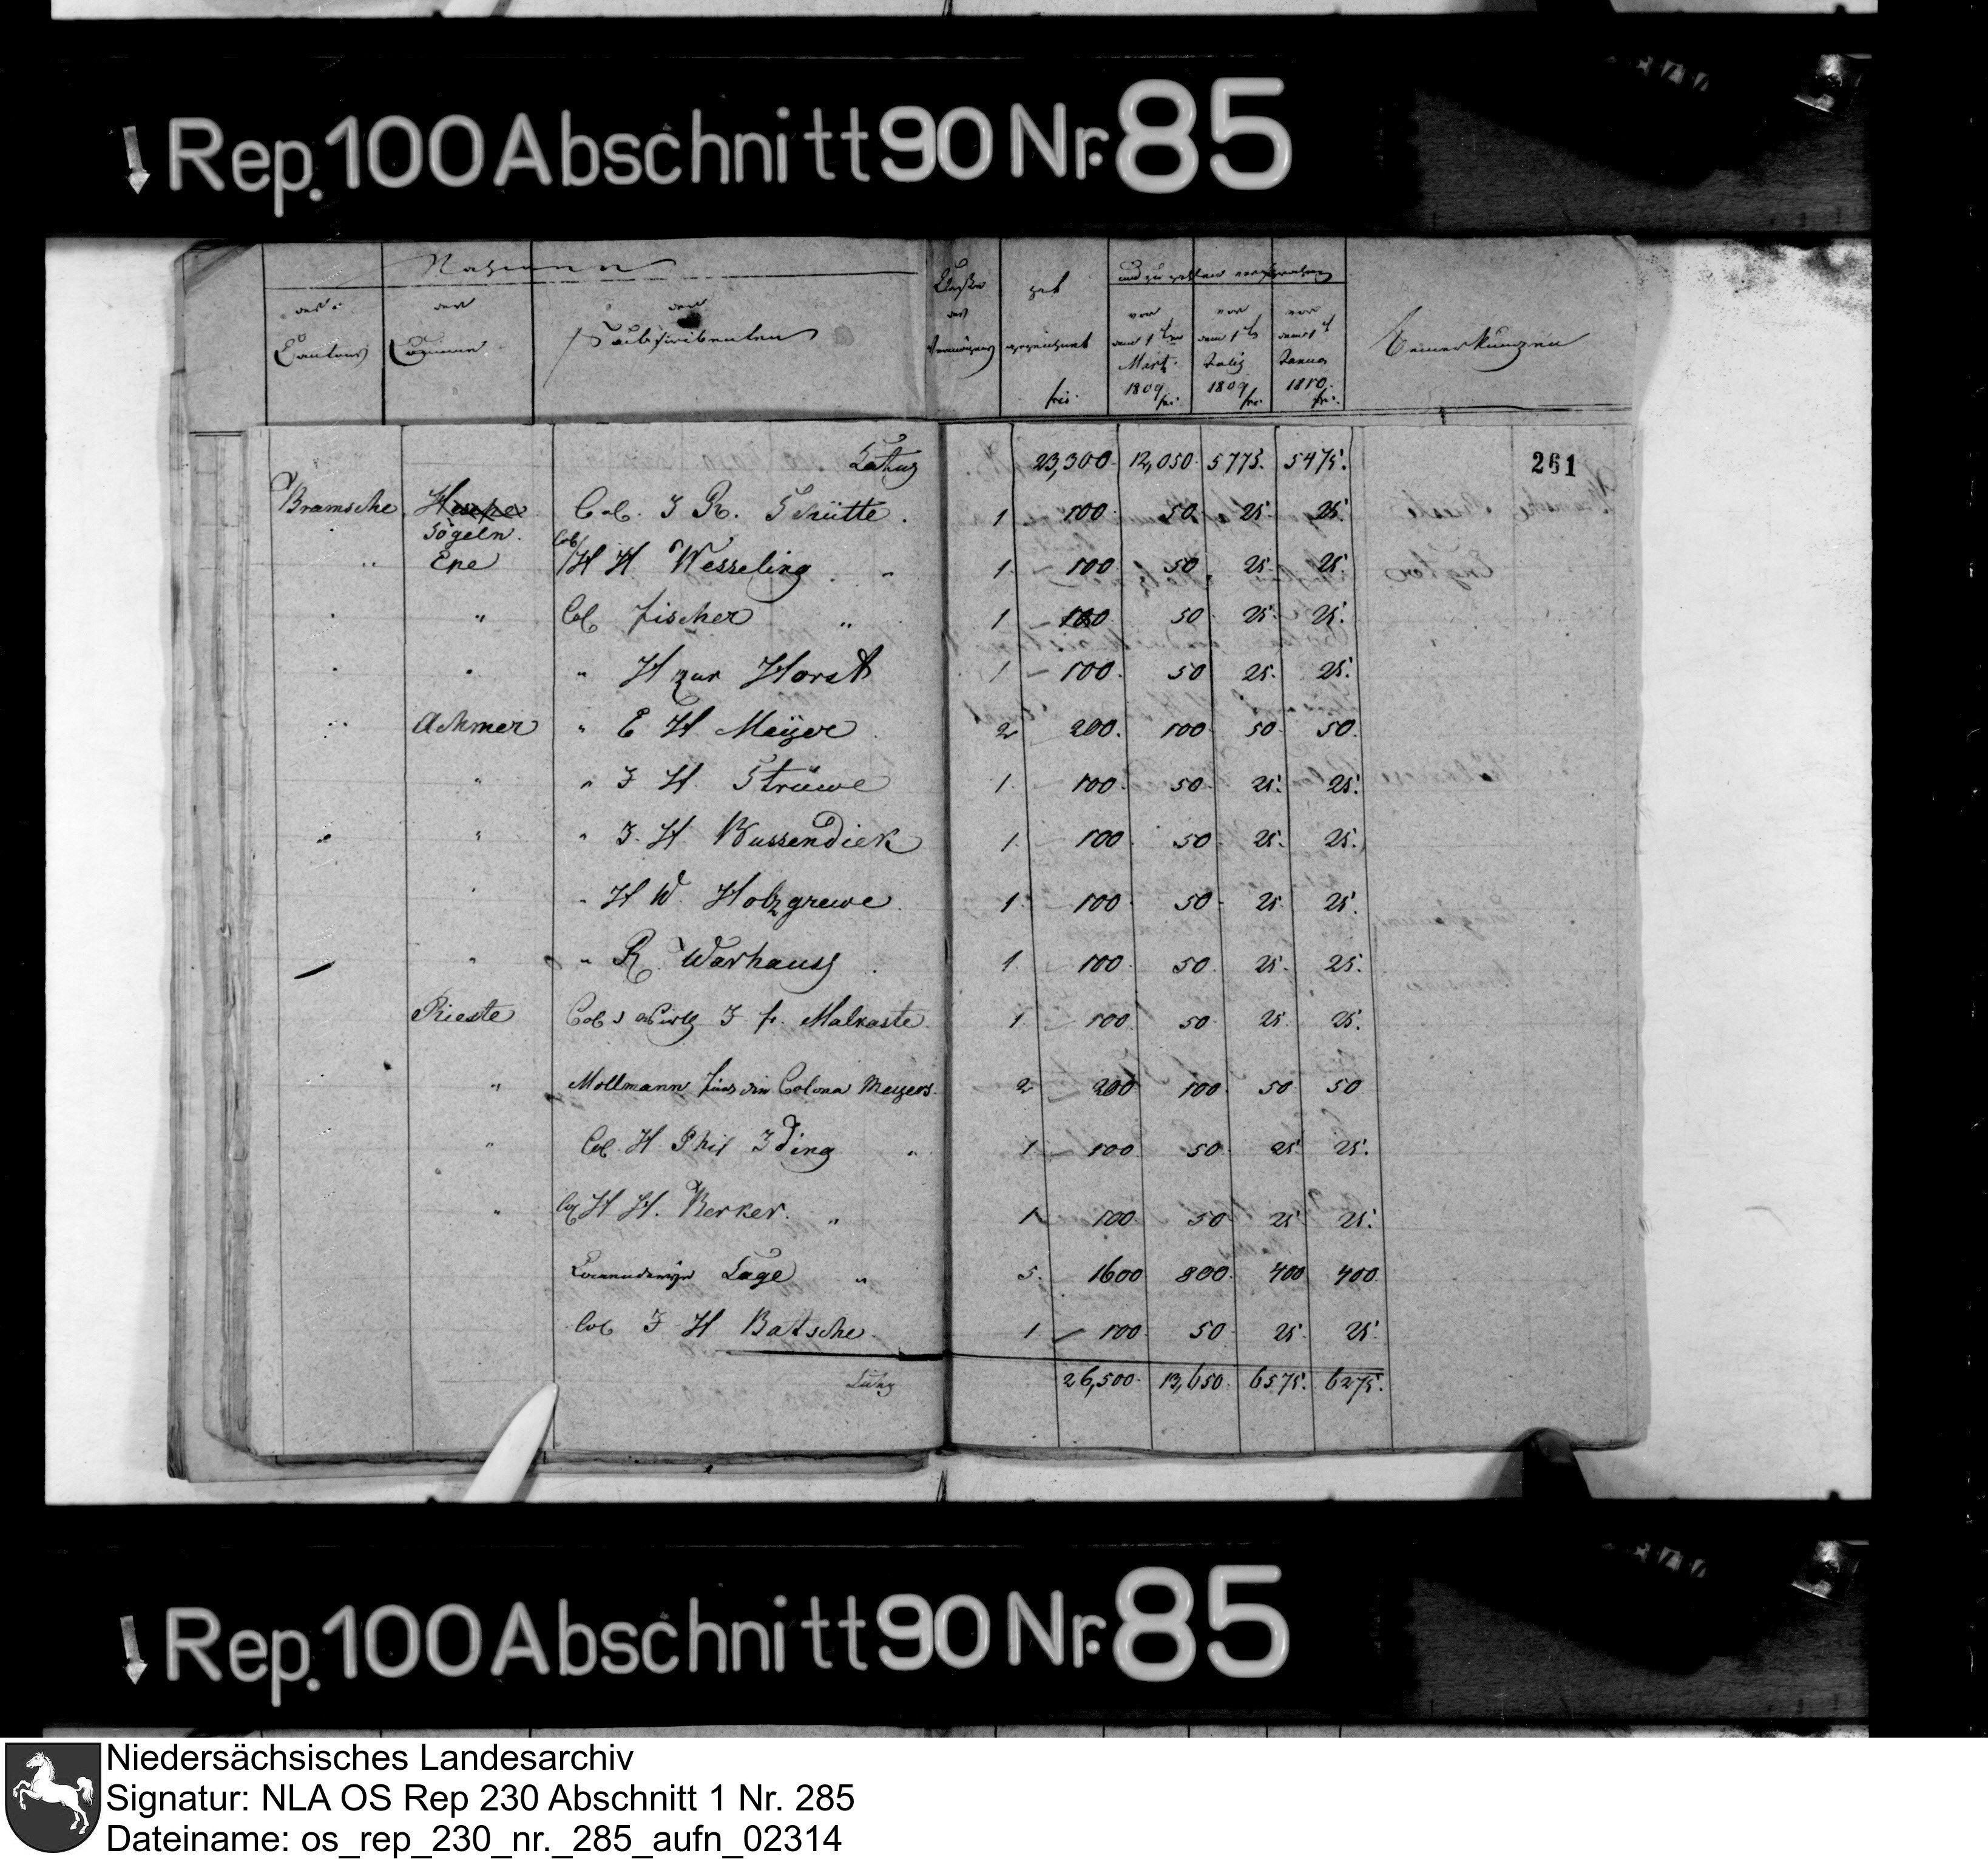 Rep. 100 Abschnitt 90 Nr. 85
Nahmen
des Cantons
der Comune
der Subscribenten
Classe des Vermögens
hat gezeichnet frcs.
und zu zahlen versprochen
vor dem 1ten Mertz 1809 frcs.
vor dem 1ten Julij 1809 frcs.
vor dem 1t Januar 1810. frcs.
Bemerkungen
261
Latus 23,300. 12,050. 5775. 5475.
Bramsche. Hesepe Col. J R. Schütte. 1 100 50 25 25.
Sögeln.
" Epe Col H H Wesseling. " 1. 100 50. 25 25.
" " Col Fischer " 1 100 50 25 25.
" " " H zur Horst 1 100. 50 25. 25.
" Achmer " E H Meÿer 2 200. 100 50 50.
" " J H. Strüwe 1. 100. 50. 25. 25.
" " " J. H. Bussendiek 1. 100 50 25. 25.
" " H W. Holzgrewe. 1. 100. 50 25 25.
" " R. Warhaus 1. 100. 50. 25. 25.
Rieste Col J F. Malkaste. 1. 100 50 25 25.
" Mollmann für den Colon Meyers. 2 200 100. 50 50
" Col. H. Phil Iding " 1 100 50. 25 25.
" Col H H. Berker. " 1 100 50 25 25.
Lage " 5. 1600 800. 400 400
Col J H Batsche. 1 100 50 25. 25.
Latus 26,500. 13,650. 6575. 6275.
Rep. 100 Abschnitt 90 Nr. 85
Niedersächsisches Landesarchiv
Signatur: NLA OS Rep 230 Abschnitt 1 Nr. 285
Dateiname: os_rep_230_nr._285_aufn_02314